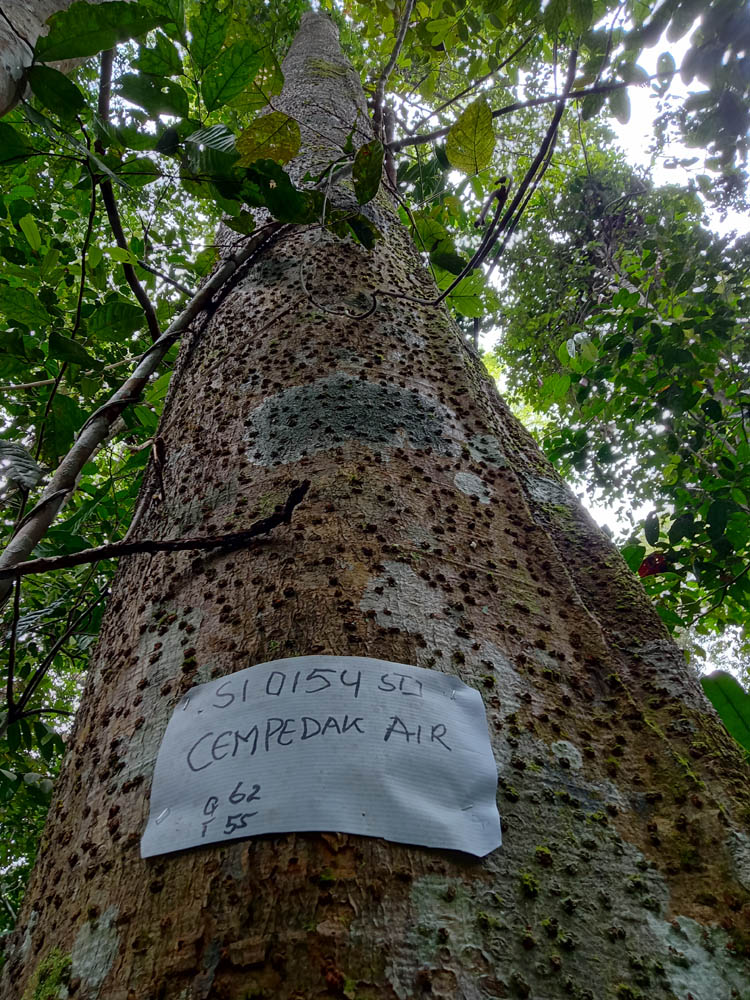 S1 0154 STJ
CEMPEDAK AIR
B 62
T 55